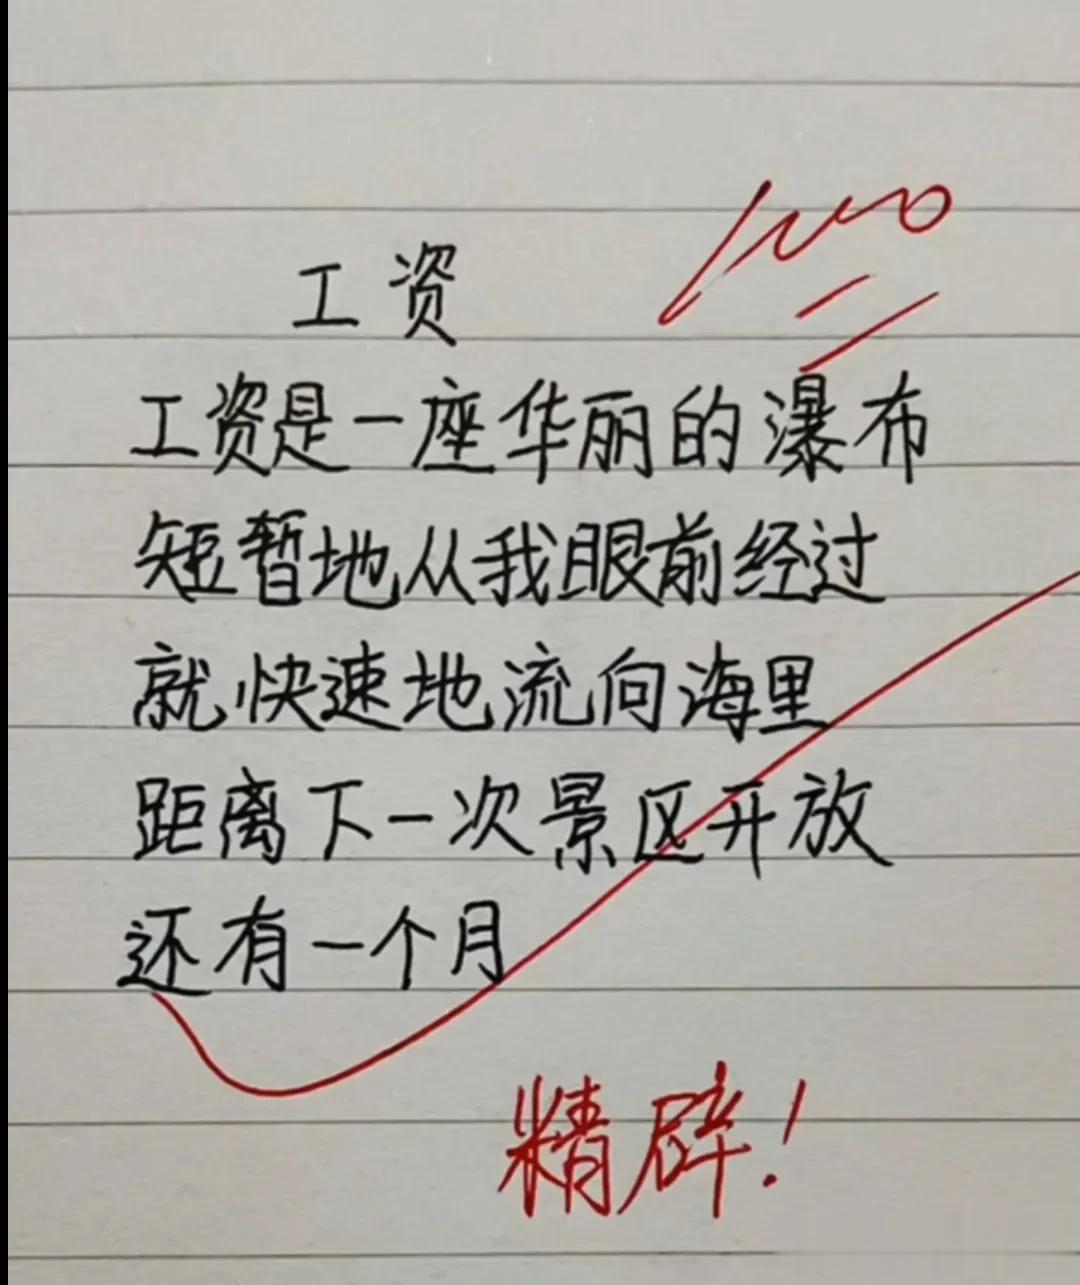 工资
100
工资是一座华丽的瀑布
短暂地从我眼前经过
就快速地流向海里
距离下一次景区开放
还有一个月
精辟!